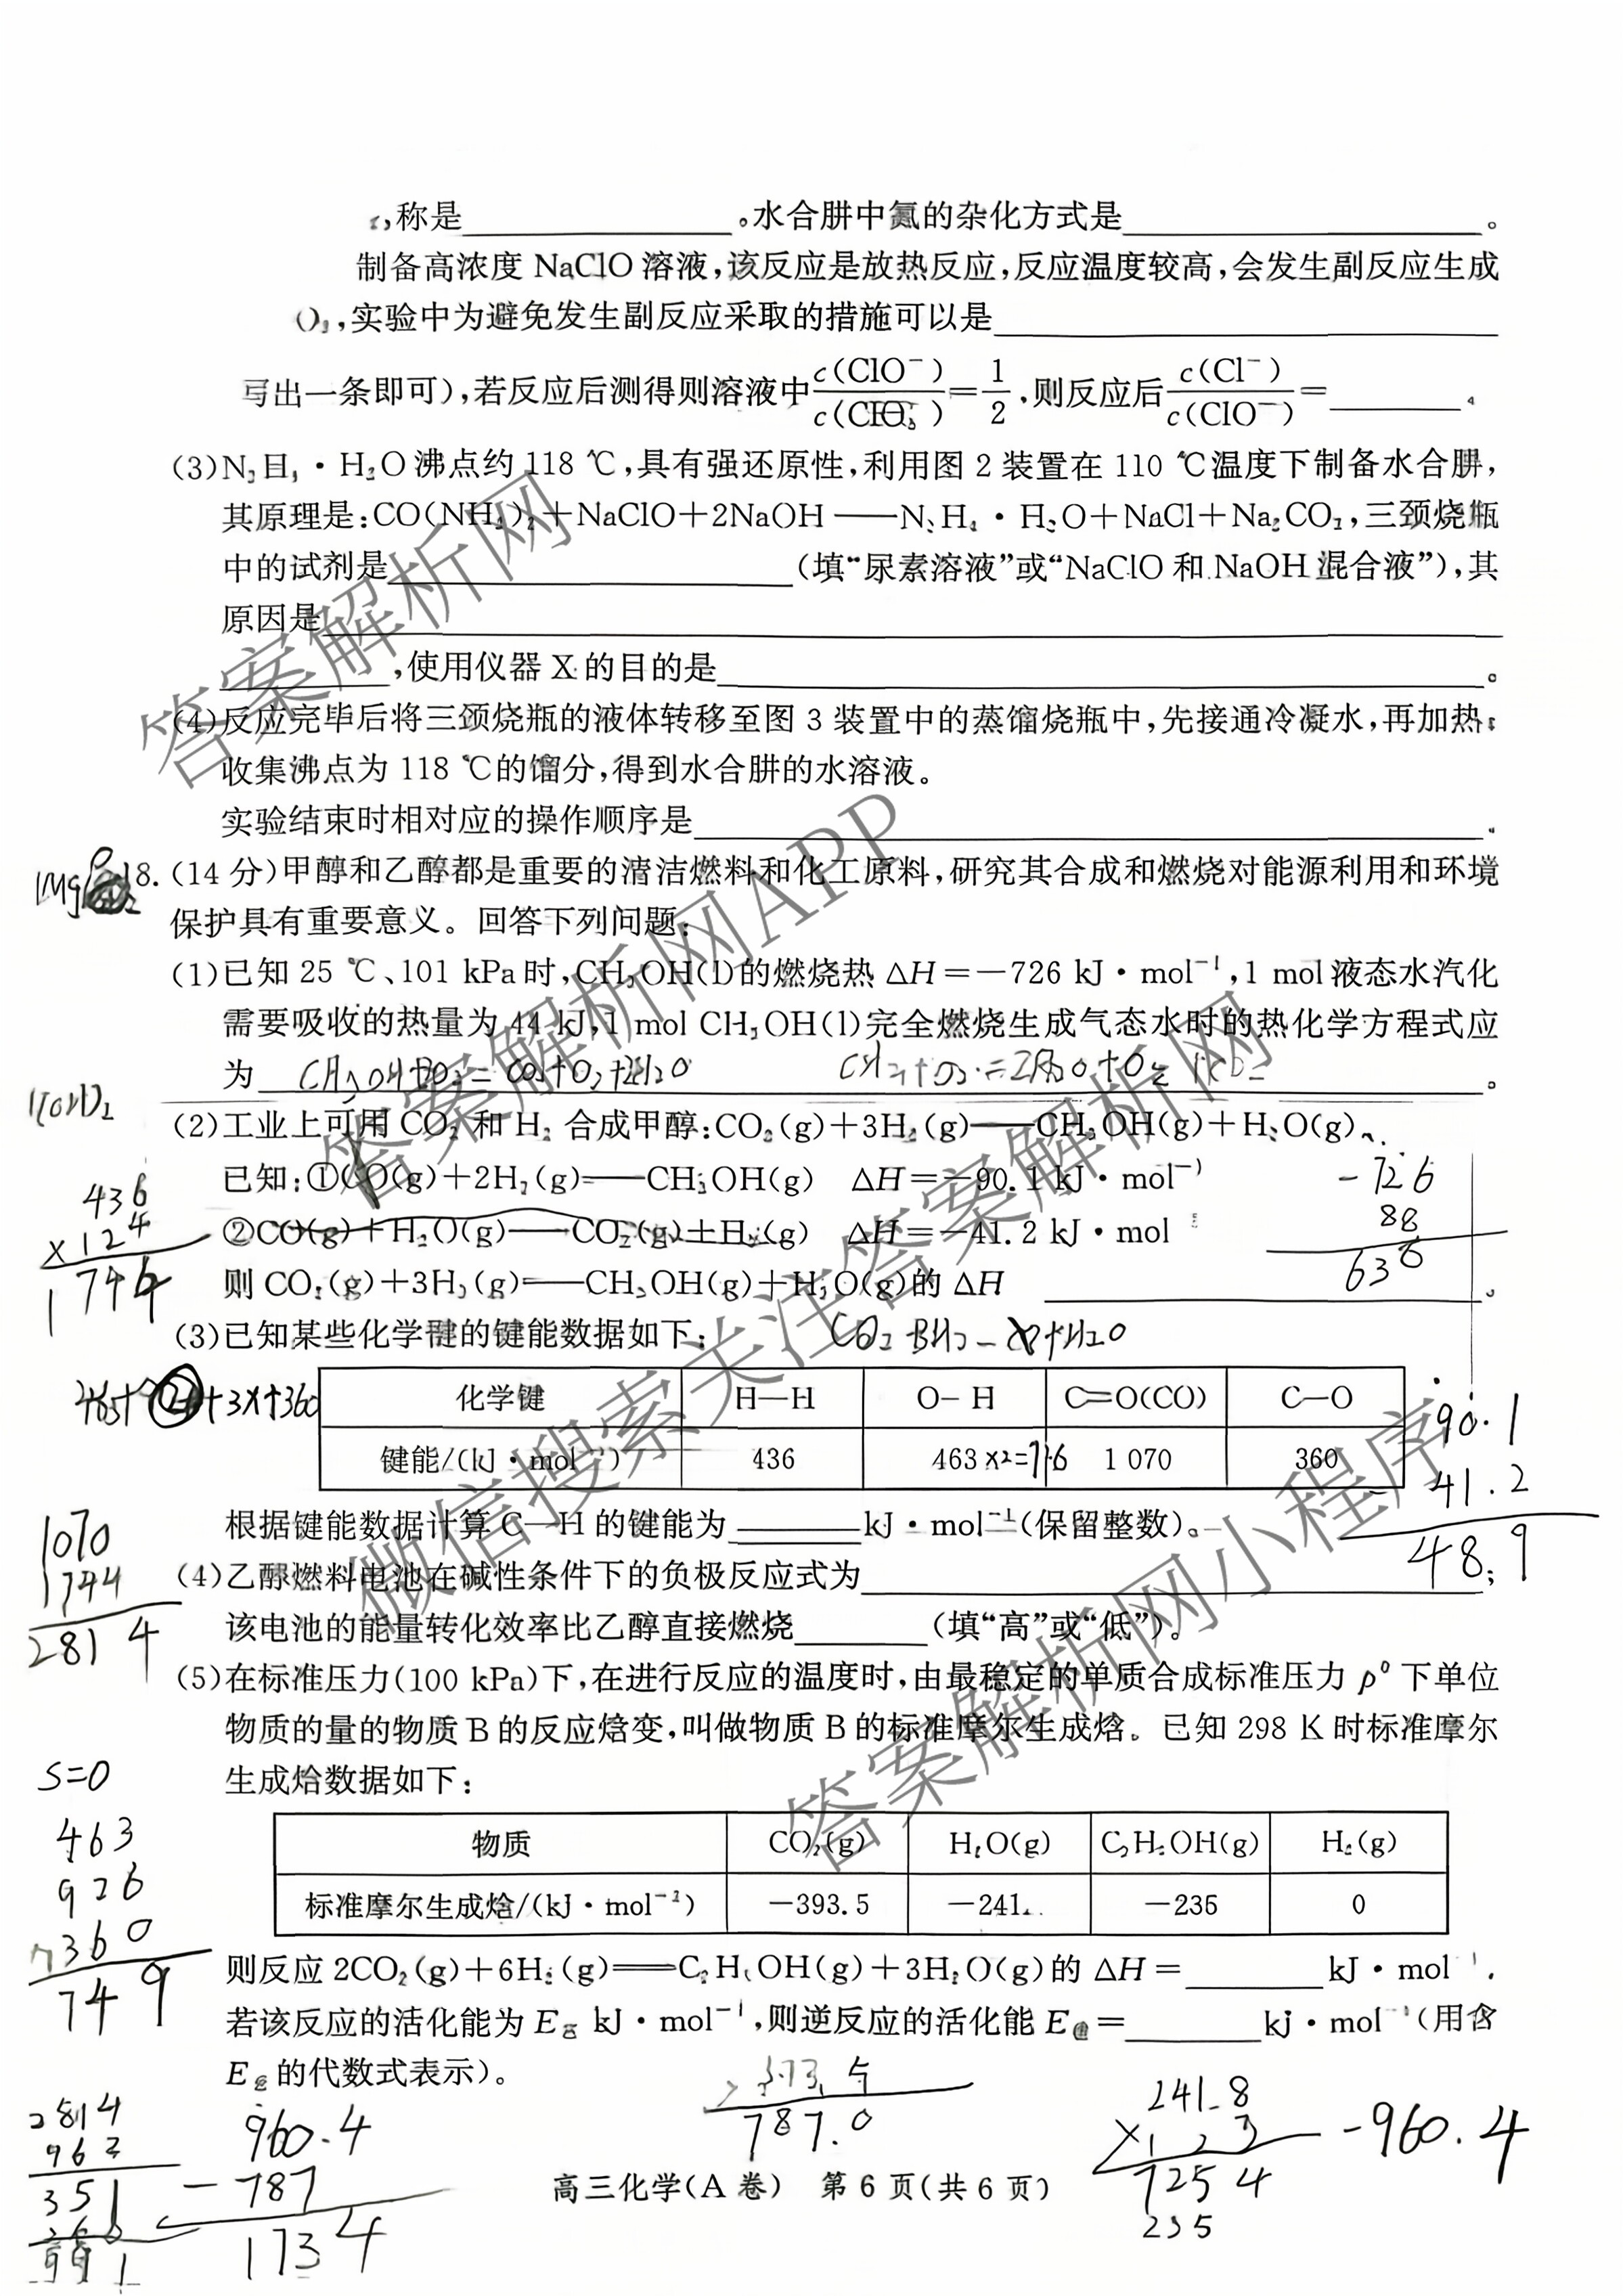 ,称是____________。水合肼中氮的杂化方式是____________。
制备高浓度 NaClO 溶液,该反应是放热反应,反应温度较高,会发生副反应生成
O₃,实验中为避免发生副反应采取的措施可以是____________
写出一条即可),若反应后测得则溶液中c(ClO⁻)/c(ClO₃⁻)=1/2,则反应后c(Cl⁻)/c(ClO⁻)=______。
(3)N₂H₄·H₂O沸点约118 ℃,具有强还原性,利用图2装置在110 ℃温度下制备水合肼,
其原理是:CO(NH₂)₂+NaClO+2NaOH══N₂H₄·H₂O+NaCl+Na₂CO₃,三颈烧瓶
中的试剂是____________(填“尿素溶液”或“NaClO和NaOH混合液”),其
原因是____________
______,使用仪器X的目的是____________。
(4)反应完毕后将三颈烧瓶的液体转移至图3装置中的蒸馏烧瓶中,先接通冷凝水,再加热;
收集沸点为118 ℃的馏分,得到水合肼的水溶液。
实验结束时相对应的操作顺序是____________。
18.(14分)甲醇和乙醇都是重要的清洁燃料和化工原料,研究其合成和燃烧对能源利用和环境
保护具有重要意义。回答下列问题:
(1)已知25 ℃、101 kPa时,CH₃OH(l)的燃烧热 ΔH=-726 kJ·mol⁻¹,1 mol液态水汽化
需要吸收的热量为44 kJ,1 mol CH₃OH(l)完全燃烧生成气态水时的热化学方程式应
为____________。
(2)工业上可用CO₂和H₂合成甲醇:CO₂(g)+3H₂(g)══CH₃OH(g)+H₂O(g)。
已知:①CO(g)+2H₂(g)══CH₃OH(g) ΔH=-90.1 kJ·mol⁻¹
-726
436
②CO(g)+H₂O(g)══CO₂(g)+H₂(g) ΔH=-41.2 kJ·mol
88
×124
则CO₂(g)+3H₂(g)══CH₃OH(g)+H₂O(g)的 ΔH ____________。
638
1744
(3)已知某些化学键的键能数据如下:
化学键 H—H O—H C═O(CO) C—O
键能/(kJ·mol⁻¹) 436 463 ×2= 1 070 360
90.1
41.2
48.9
根据键能数据计算C—H的键能为______kJ·mol⁻¹(保留整数)。
1070
1744
2814
(4)乙醇燃料电池在碱性条件下的负极反应式为____________;
该电池的能量转化效率比乙醇直接燃烧______(填“高”或“低”)。
(5)在标准压力(100 kPa)下,在进行反应的温度时,由最稳定的单质合成标准压力 p⁰ 下单位
物质的量的物质B的反应焓变,叫做物质B的标准摩尔生成焓。已知298 K时标准摩尔
生成焓数据如下:
S=0
463
926
360
749
物质 CO₂(g) H₂O(g) C₂H₅OH(g) H₂(g)
标准摩尔生成焓/(kJ·mol⁻¹) -393.5 -241. -235 0
则反应2CO₂(g)+6H₂(g)══C₂H₅OH(g)+3H₂O(g)的 ΔH=______kJ·mol⁻¹。
若该反应的活化能为E正 kJ·mol⁻¹,则逆反应的活化能E逆=______kj·mol⁻¹(用含
E正的代数式表示)。
787.0
241.8
×123
7254
235
-960.4
2814
960.4
-787
1734
高三化学(A卷) 第6页(共6页)